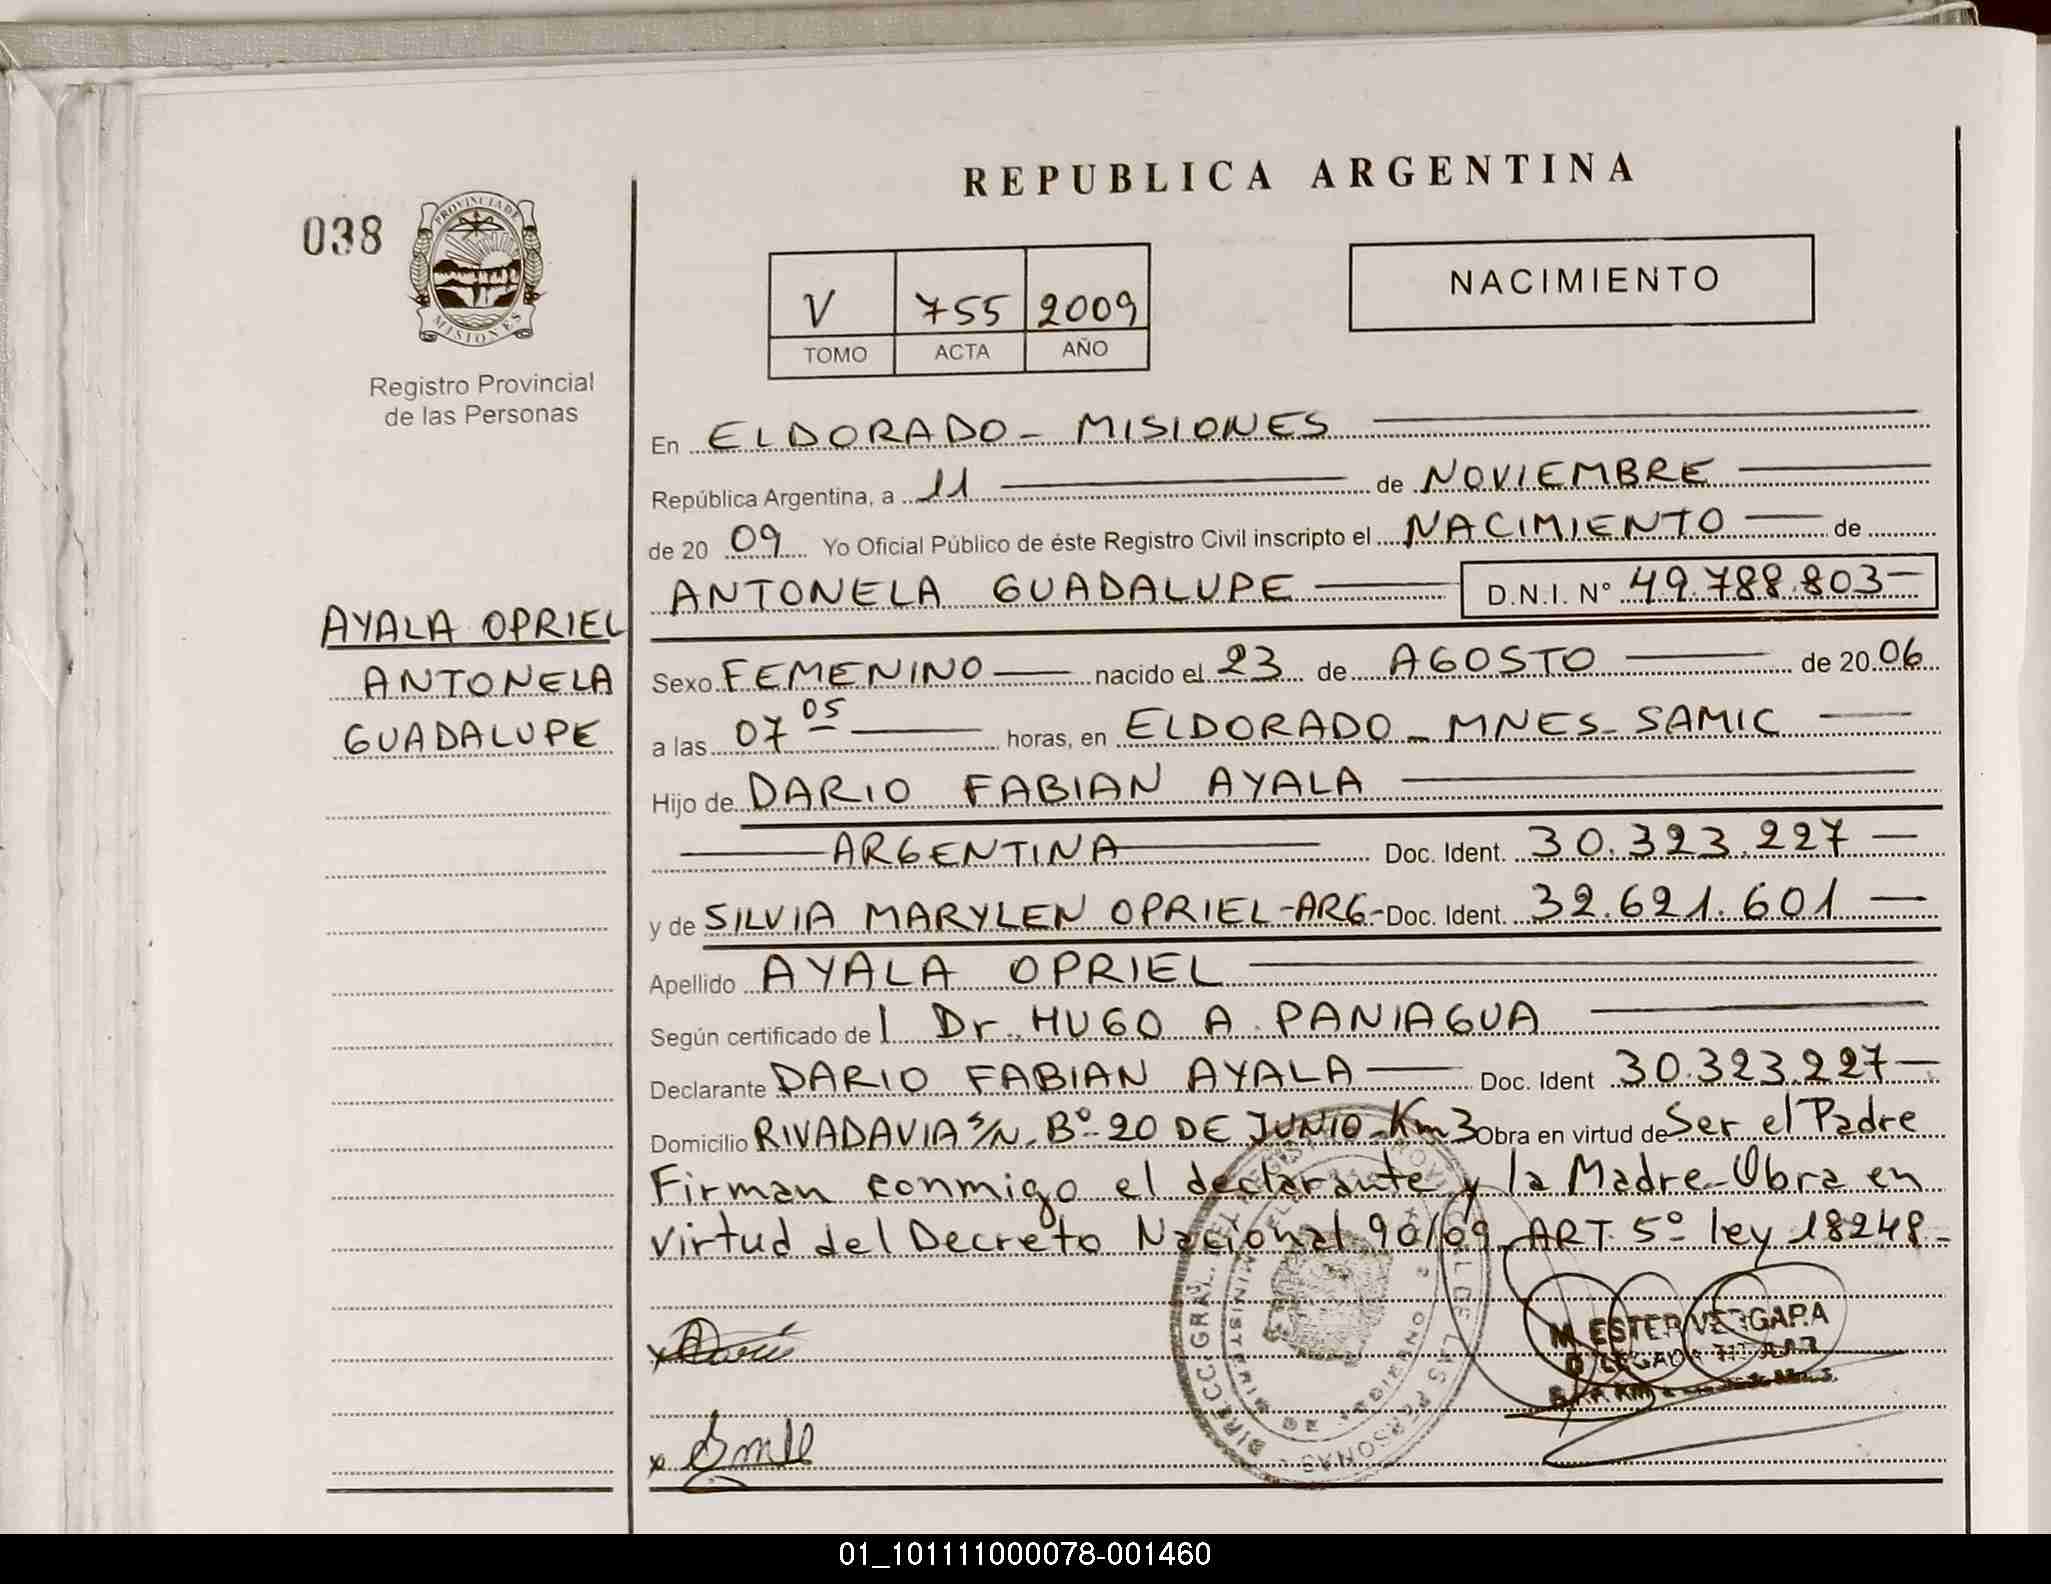 REPUBLICA ARGENTINA
038
PROVINCIA DE
MISIONES
Registro Provincial
de las Personas
V 755 2009
TOMO ACTA AÑO
NACIMIENTO
En ELDORADO - MISIONES
República Argentina, a 11 de NOVIEMBRE
de 20 09 Yo Oficial Público de éste Registro Civil inscripto el NACIMIENTO de
ANTONELA GUADALUPE D.N.I. Nº 49.788.803
AYALA OPRIEL
ANTONELA
GUADALUPE
Sexo FEMENINO nacido el 23 de AGOSTO de 20 06
a las 07 05 horas, en ELDORADO - MNES - SAMIC
Hijo de DARIO FABIAN AYALA
ARGENTINA Doc. Ident. 30.323.227
y de SILVIA MARYLEN OPRIEL - ARG. - Doc. Ident. 32.621.601
Apellido AYALA OPRIEL
Según certificado de l Dr. HUGO A. PANIAGUA
Declarante DARIO FABIAN AYALA Doc. Ident 30.323.227
Domicilio RIVADAVIA S/N. Bº 20 DE JUNIO - Km 3 Obra en virtud de Ser el Padre
Firman conmigo el declarante y la Madre - Obra en
virtud del Decreto Nacional 90/09 - ART. 5º ley 18248 -
M. ESTER VERGARA
01_101111000078-001460